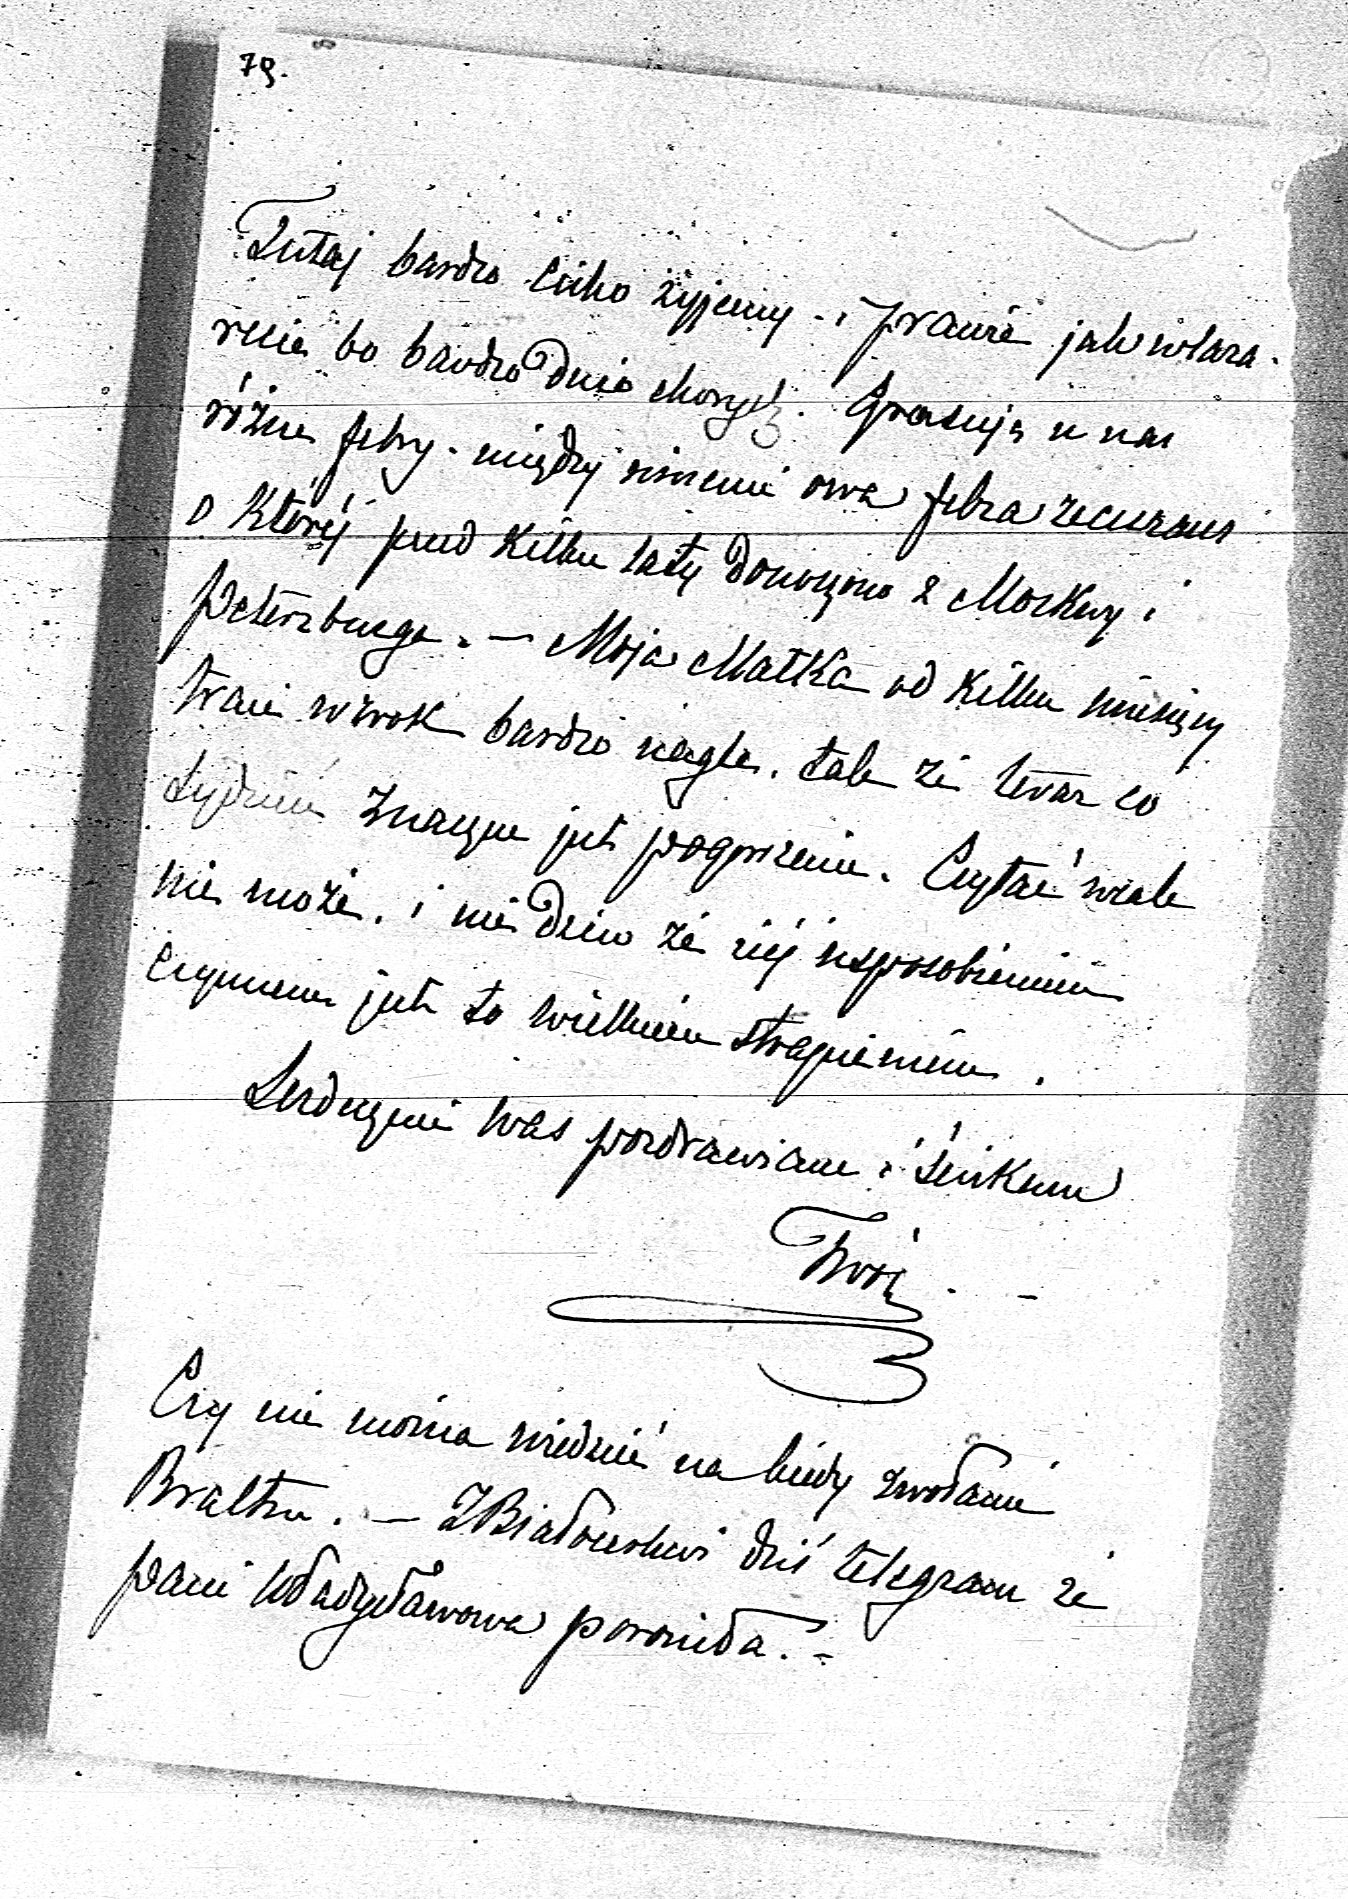 79.
Tutaj bardzo cicho żyjemy - i prawie jak w laza-
recie bo bardzo dużo chorych. Grasują u nas
różne febry. między innemi owa febra recurens
o której przed kilku laty donoszono z Moskwy i
Petersburga. — Moja Matka od kilku miesięcy
traci wzrok bardzo nagle. tak że teraz co
tydzień znaczne jest pogorszenie. Czytać wcale
nie może. i nie dziw że jej usposobieniu
czynnemu jest to wielkiem strapieniem.
Serdecznie Was pozdrawiam i ściskam
Twój
Czy nie można wiedzieć na kiedy zwołanie
. — Z dziś telegram że
pani Władysławowa poroniła. -